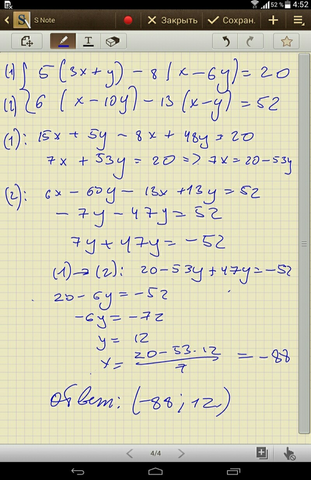 52 % 4:52
S Note Закрыть Сохран.
(1) { 5 (3x+y) – 8 (x – 6y) = 20
(2) { 6 (x – 10y) – 13 (x – y) = 52
(1): 15x + 5y – 8x + 48y = 20
7x + 53y = 20 => 7x = 20 – 53y
(2): 6x – 60y – 13x + 13y = 52
– 7y – 47y = 52
7y + 47y = – 52
(1) → (2): 20 – 53y + 47y = – 52
20 – 6y = – 52
– 6y = – 72
y = 12
x = (20 – 53 · 12) / 7 = – 88
ответ: (– 88 ; 12)
4/4